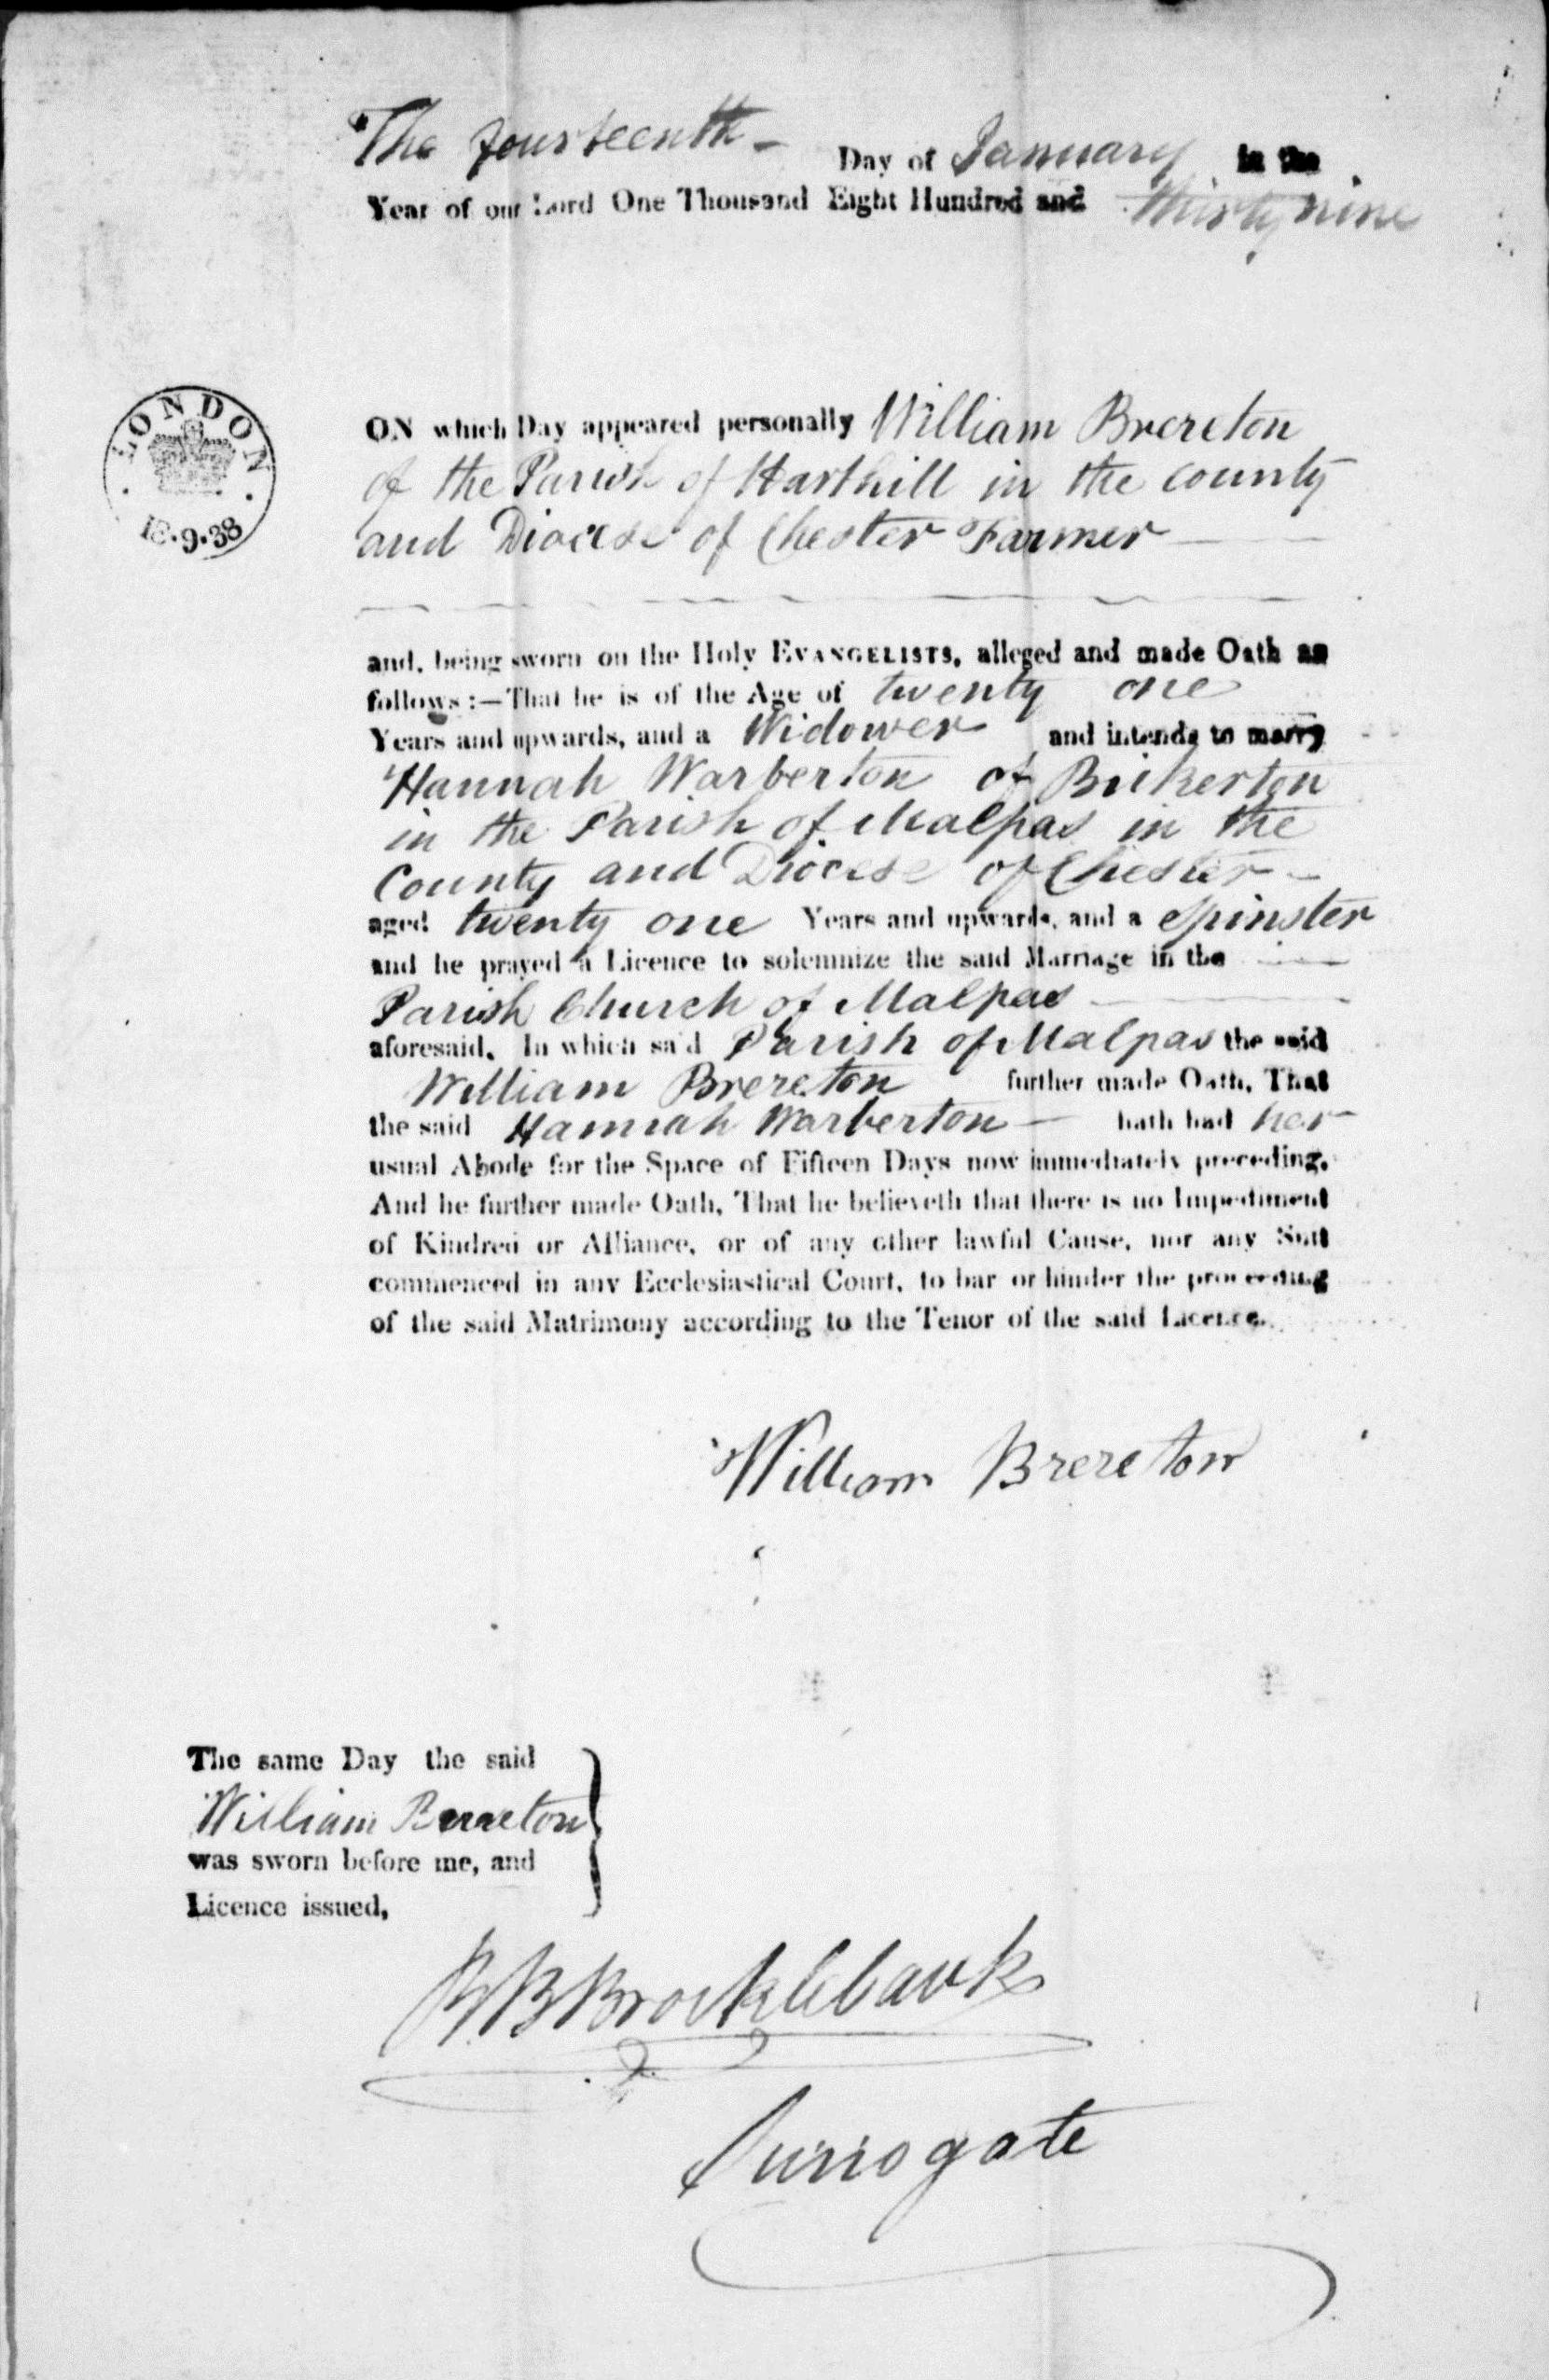 The fourteenth - Day of January in the
Year of our Lord One Thousand Eight Hundred and thirty nine
LONDON
18.9.38
ON which Day appeared personally William Brereton
of the Parish of Harthill in the County
and Diocese of Chester Farmer
and, being sworn on the Holy EVANGELISTS, alleged and made Oath as
follows:—That he is of the Age of twenty one
Years and upwards, and a Widower and intends to marry
Hannah Warberton of Bickerton
in the Parish of Malpas in the
County and Diocese of Chester -
aged twenty one Years and upwards, and a Spinster
and he prayed a Licence to solemnize the said Marriage in the
Parish Church of Malpas
aforesaid. In which said Parish of Malpas the said
William Brereton further made Oath, That
the said Hannah Warberton — hath had her
usual Abode for the Space of Fifteen Days now immediately preceding.
And he further made Oath, That he believeth that there is no Impediment
of Kindred or Alliance, or of any other lawful Cause, nor any Suit
commenced in any Ecclesiastical Court, to bar or hinder the proceeding
of the said Matrimony according to the Tenor of the said Licence.
William Brereton
The same Day the said
William Brereton
was sworn before me, and
Licence issued,
Brocklebank
Surrogate